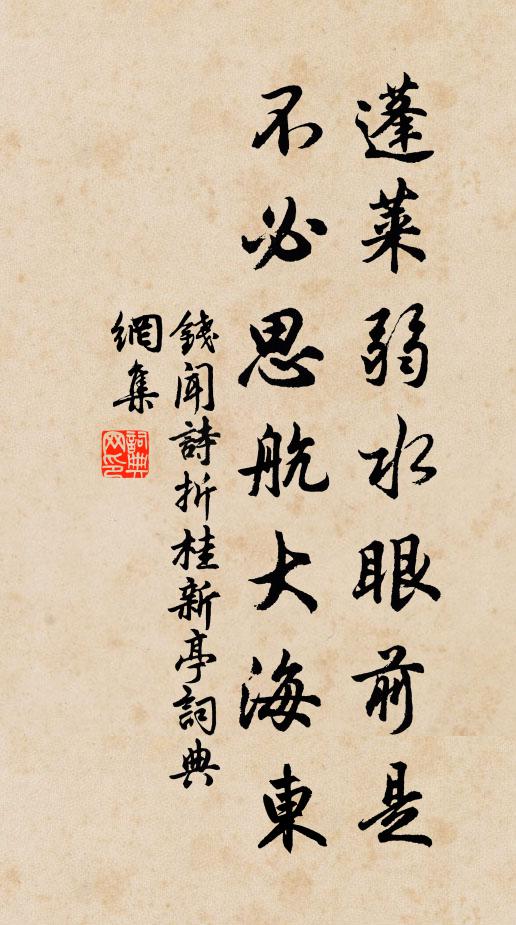 蓬萊弱水眼前是
不必思航大海東
錢聞詩折桂新亭詞典
網集
詞典網印